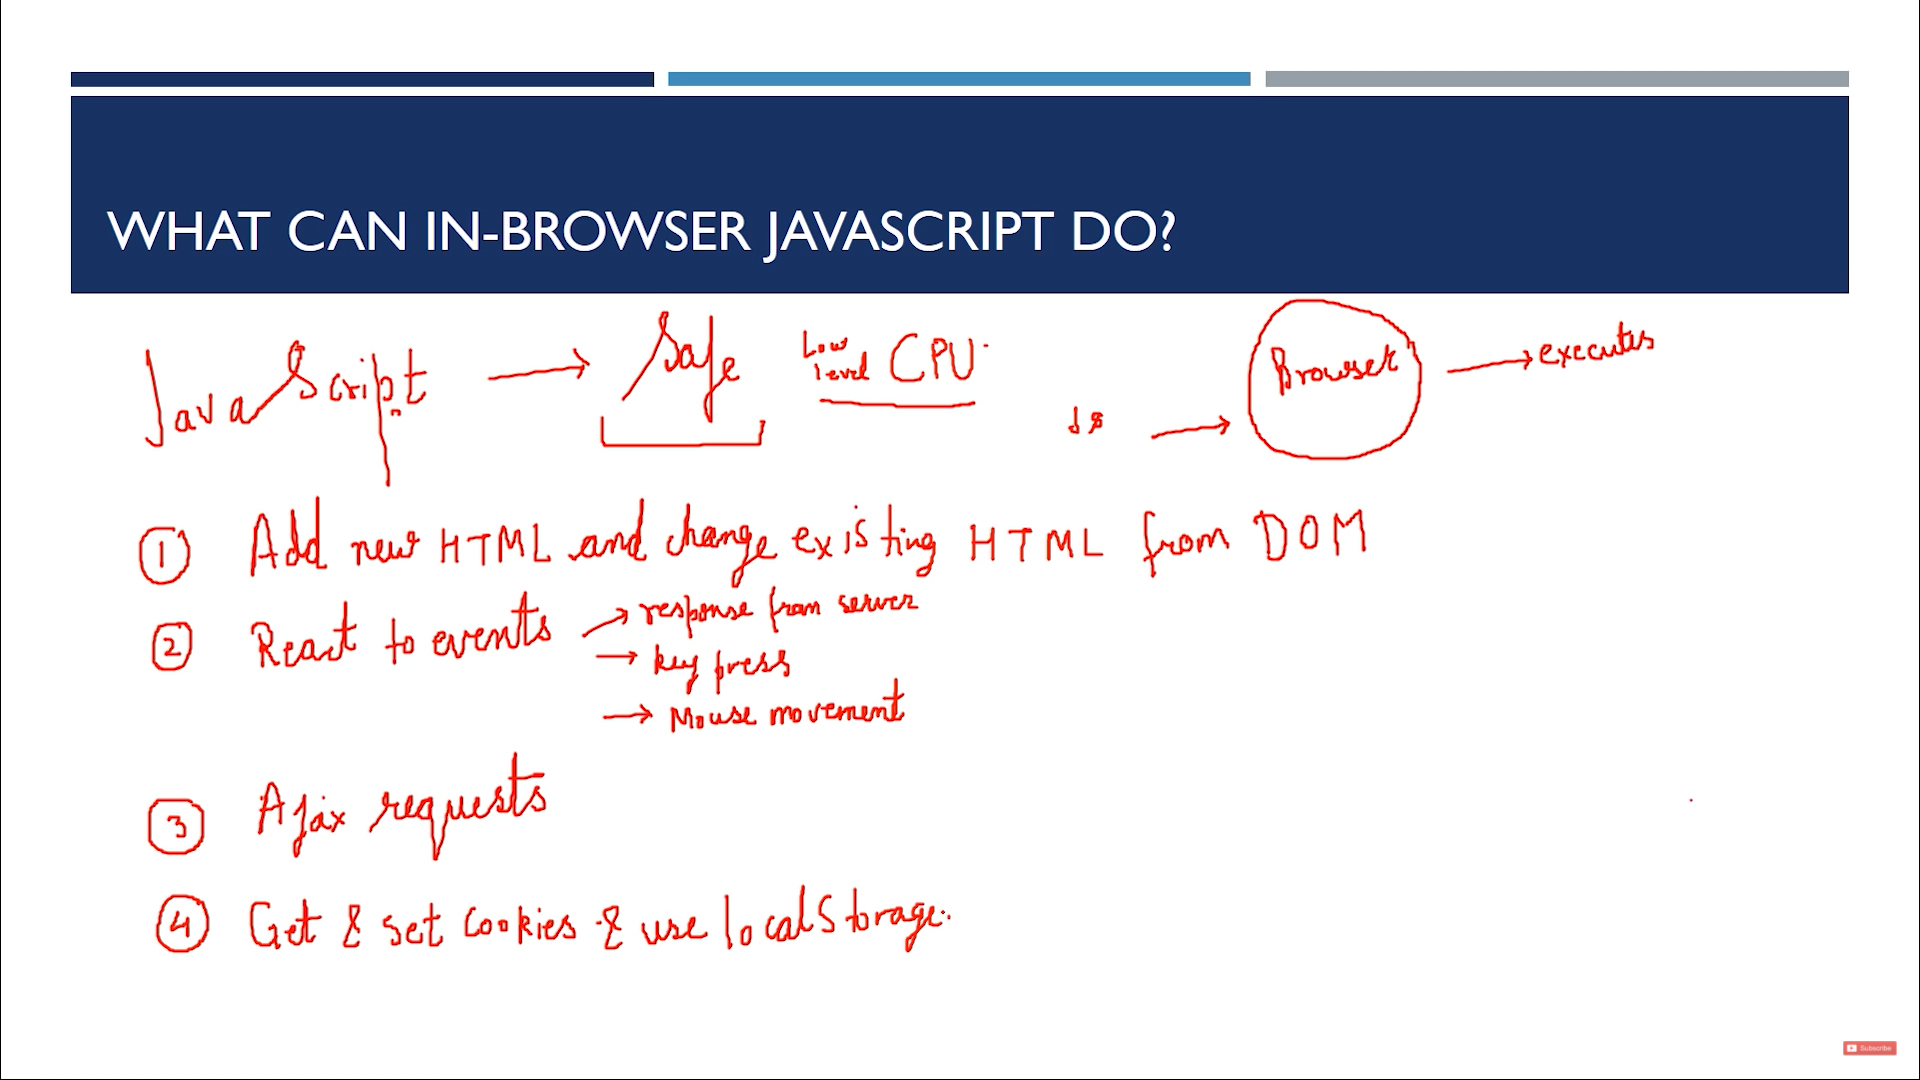 WHAT CAN IN-BROWSER JAVASCRIPT DO?
JavaScript → Safe Low level CPU
JS → Browser → executes
1 Add new HTML and change existing HTML from DOM
2 React to events → response from server
→ key press
→ Mouse movement
3 Ajax requests
4 Get & set cookies & use localStorage.
Subscribe